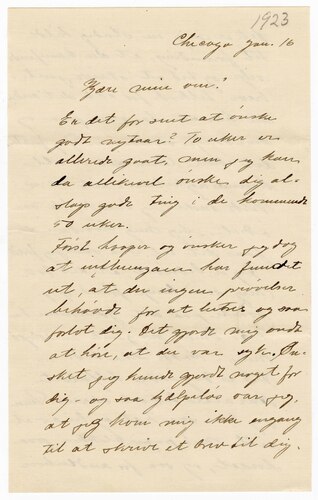 1923
Chicago Jan. 16
Kære mine om!
Er det for sent at ønske
godt nytaar? To uker er
allerede gaat, men jeg kan
da allikevel ønske dig al-
slags gode ting i de kommende
50 uker.
Først haaper og ønsker jeg dog
at influenzaen har fundet
ut, at du ingen prøvelser
behøvde for at bedres og saa
forlot dig. Det gjorde mig ondt
at høre, at du var syk. Øn-
sket jeg kunde gjordt noget for
dig - og saa hjælpeløs var jeg,
at jeg kom mig ikke engang
til at skrive et brev til dig.